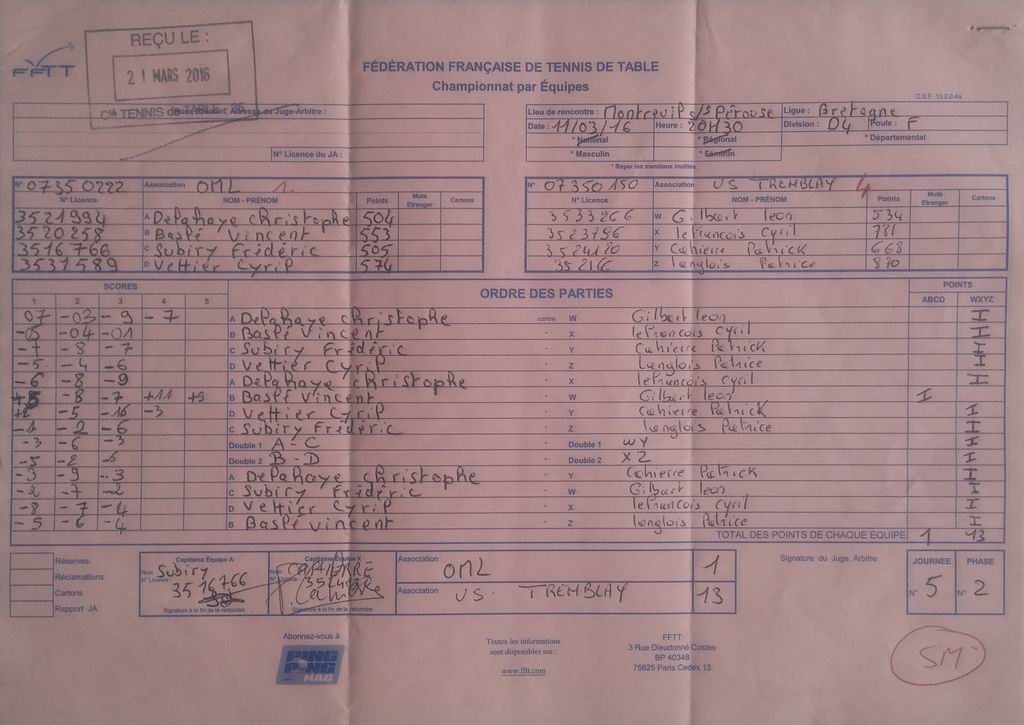 REÇU LE :
21 MARS 2016
FFTT
FÉDÉRATION FRANÇAISE DE TENNIS DE TABLE
Championnat par Équipes
C.S.F. 13.2.0.4a
Lieu de rencontre : Montreuil s/s Pérouse Ligue : Bretagne
Date : 11/03/16 Heure : 20H30 Division : D4 Poule : F
* National * Régional * Départemental
* Masculin * Féminin
* Rayer les mentions inutiles
N° Licence du JA :
N° 07350222 Association OML 1.
N° Licence NOM - PRÉNOM Points Muté Etranger Cartons
3521994 A Delahaye Christophe 504
3520258 B Baslé Vincent 553
3516766 C Subiry Frédéric 505
3531589 D Vettier Cyril 574
N° 07350150 Association US TREMBLAY 4
N° Licence NOM - PRÉNOM Points Muté Etranger Cartons
3533266 W Gilbert leon 534
3523756 X lefrancois Cyril 781
Y Cahierre Patrick 668
Z langlois Patrice 810
SCORES ORDRE DES PARTIES POINTS
1 2 3 4 5 ABCD WXYZ
07 -03 -9 -7 A Delahaye Christophe contre W Gilbert leon I
-05 -04 -01 B Baslé Vincent X lefrancois Cyril I
-7 -8 -7 C Subiry Frédéric Y Cahierre Patrick I
-5 -4 -6 D Vettier Cyril Z langlois Patrice I
-6 -8 -9 A Delahaye Christophe X lefrancois Cyril I
-8 -7 +11 +9 B Baslé Vincent W Gilbert leon I
-5 -16 -3 D Vettier Cyril Y Cahierre Patrick I
-1 -2 -6 C Subiry Frédéric Z langlois Patrice I
-3 -6 -3 Double 1 A - C Double 1 WY I
-5 -8 -6 Double 2 B - D Double 2 XZ I
-3 -9 -3 A Delahaye Christophe Y Cahierre Patrick I
-2 -7 -2 C Subiry Frédéric W Gilbert leon I
-8 -7 -4 D Vettier Cyril X lefrancois Cyril I
-5 -6 -4 B Baslé Vincent Z langlois Patrice I
TOTAL DES POINTS DE CHAQUE EQUIPE 1 13
Réserves
Réclamations
Cartons
Rapport JA
Capitaine Équipe A
Nom Subiry
N° Licence 3516766
Signature à la fin de la rencontre
Capitaine Équipe X
CAHIERRE
Signature à la fin de la rencontre
Association OML 1
Association US. TREMBLAY 13
Signature du Juge Arbitre
JOURNEE PHASE
N° 5 N° 2
Abonnez-vous à
PING PONG MAG
Toutes les informations
sont disponibles sur :
www.fftt.com
FFTT
3 Rue Dieudonné Costes
BP 40348
75625 Paris Cedex 13
SM